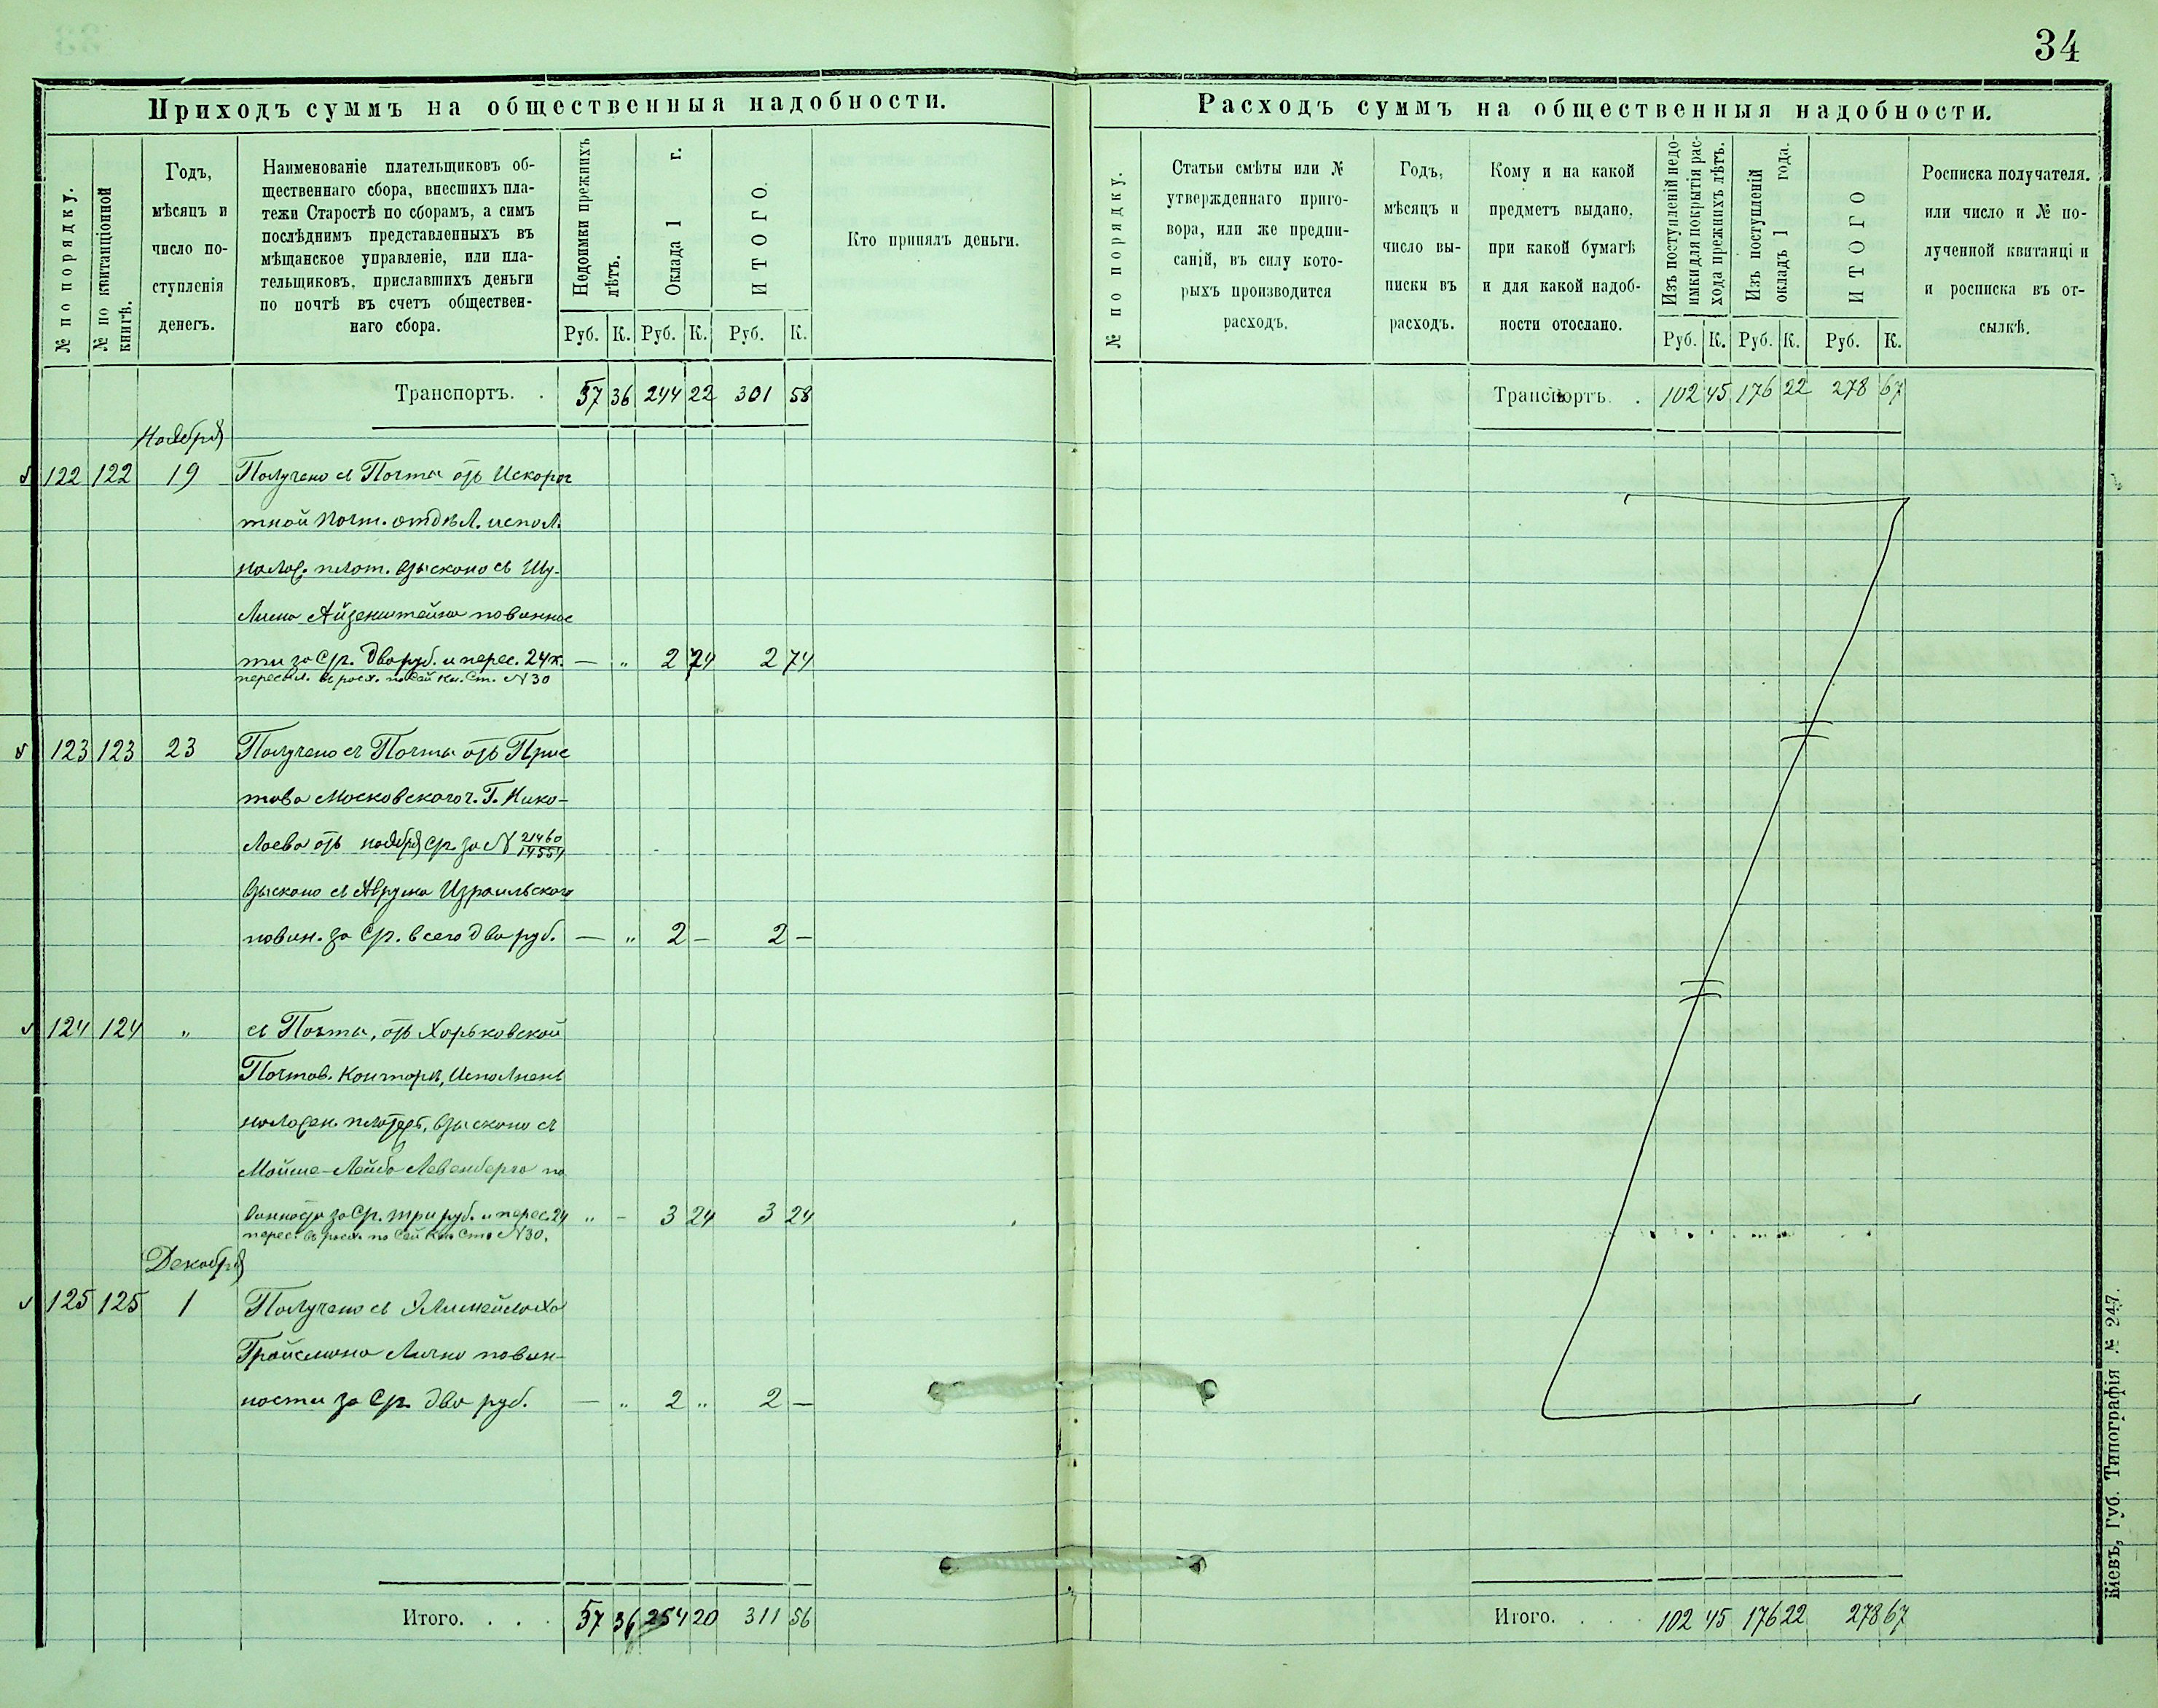 34
Приходъ суммъ на общественныя надобности.
№ по порядку.
№ по квитанціонной книгѣ.
Годъ, мѣсяцъ и число поступленія денегъ.
Наименованіе плательщиковъ об-
щественнаго сбора, внесшихъ пла-
тежи Старостѣ по сборамъ, а симъ
послѣднимъ представленныхъ въ
мѣщанское управленіе, или пла-
тельщиковъ, приславшихъ деньги
по почтѣ въ счетъ обществен-
наго сбора.
Недоимки прежнихъ лѣтъ.
Оклада 1 г.
ИТОГО.
Руб. К. Руб. К. Руб. К.
Кто принялъ деньги.
Транспортъ. . 57 36 244 22 301 58
Ноября
122 122 19 Получено съ Почты отъ Искорос
тной почт. отдѣл. испол.
налож. плат. взыскано съ Шу-
лима Айзенштейна повиннос
ти за с/г. два руб. и перес. 24 к. — „ 2 74 2 74
пересыл. въ расх. по сей кн. Ст. N 30
123 123 23 Получено съ Почты отъ Прис
тава Московскаго ч. Г. Нико-
лаева отъ ноября с/г. за N 21460/14554
взыскано съ Аврума Израильскаго
повин. за с/г. всего два руб. — „ 2 — 2 —
124 124 „ съ Почты, отъ Харьковской
Почтов. Конторы, Исполнен
наложен. платеж, взыскано съ
Мойше-Лейба Левенберга по
винности за с/г. три руб. и перес. 24 „ - 3 24 3 24
перес. въ расх. по сей кн. Ст. N 30.
Декабря
125 125 1 Получено съ
Гройсмана Лично повин-
ности за с/г. два руб. — „ 2 „ 2 —
Итого. . . . 57 36 254 20 311 56
Расходъ суммъ на общественныя надобности.
№ по порядку.
Статьи смѣты или №
утвержденнаго приго-
вора, или же предпи-
саній, въ силу кото-
рыхъ производится
расходъ.
Годъ,
мѣсяцъ и
число вы-
писки въ
расходъ.
Кому и на какой
предметъ выдано,
при какой бумагѣ
и для какой надоб-
ности отослано.
Изъ поступленій недо-
имки для покрытія рас-
хода прежнихъ лѣтъ.
Изъ поступленій
окладъ 1 года.
ИТОГО
Руб. К. Руб. К. Руб. К.
Росписка получателя.
или число и № по-
лученной квитанціи
и росписка въ от-
сылкѣ.
Транспортъ. . 102 45 176 22 278 67
Итого. . . . 102 45 176 22 278 67
Кіевъ, Губ. Типографія № 247.